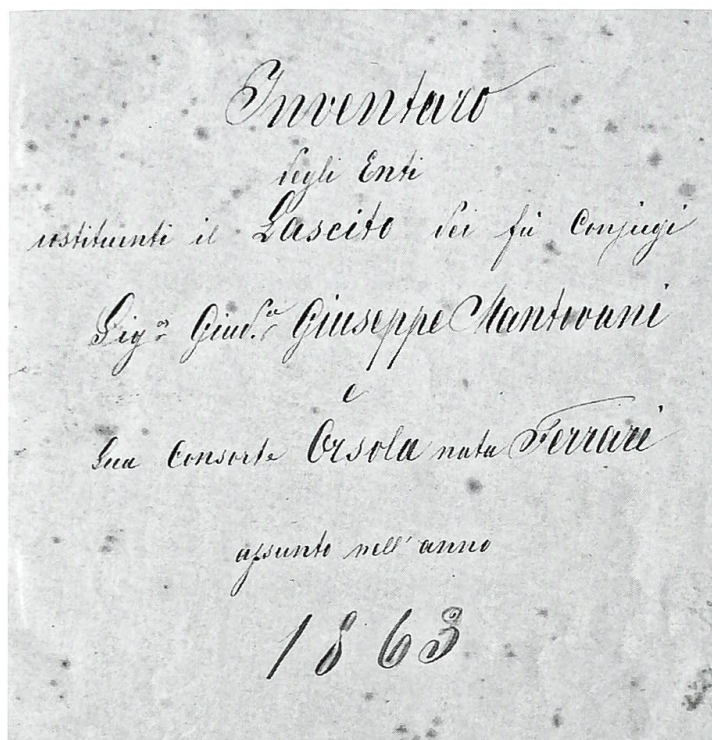 Inventaro
degli Enti
costituenti il Lascito dei fù Conjugi
Sig.r Giud.e Giuseppe Mantovani
e
Sua Consorte Orsola nata Ferrari
assunto nell'anno
1863